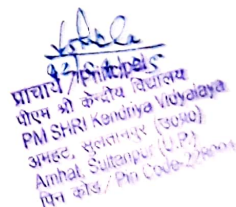 प्राचार्य / Principal
पीएम श्री केन्द्रीय विद्यालय
PM SHRI Kendriya Vidyalaya
अमहट, सुलतानपुर (उ०प्र०)
Amhat, Sultanpur (U.P.)
पिन कोड / Pin Code-228001